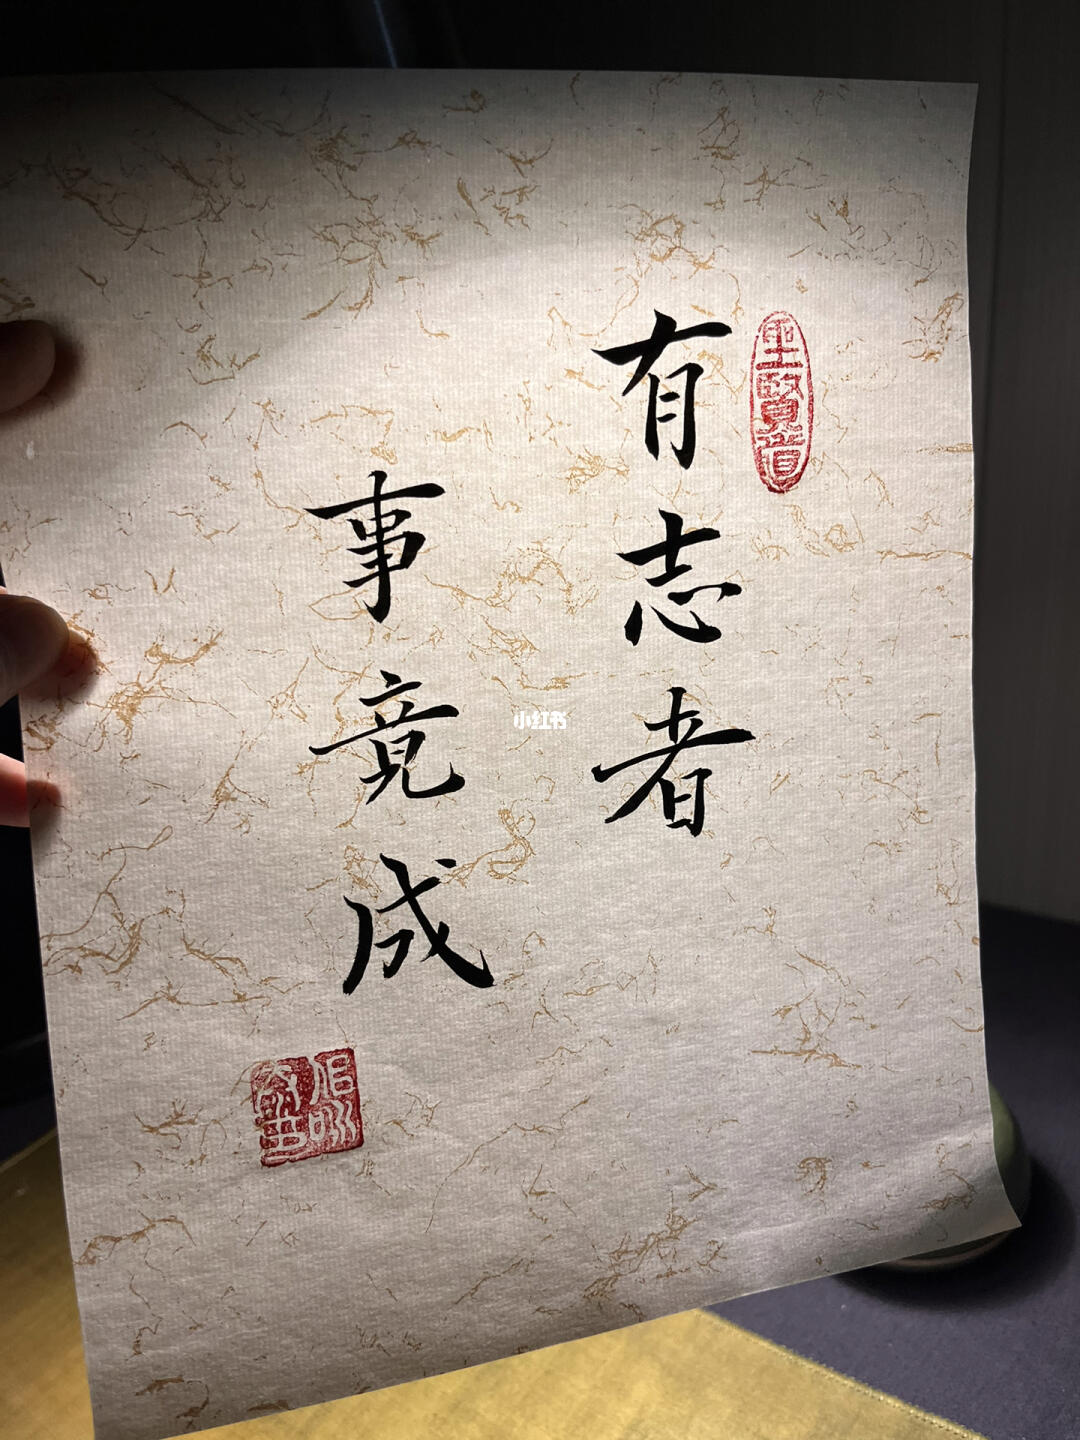 有志者
事竟成
聖賢道
小红书